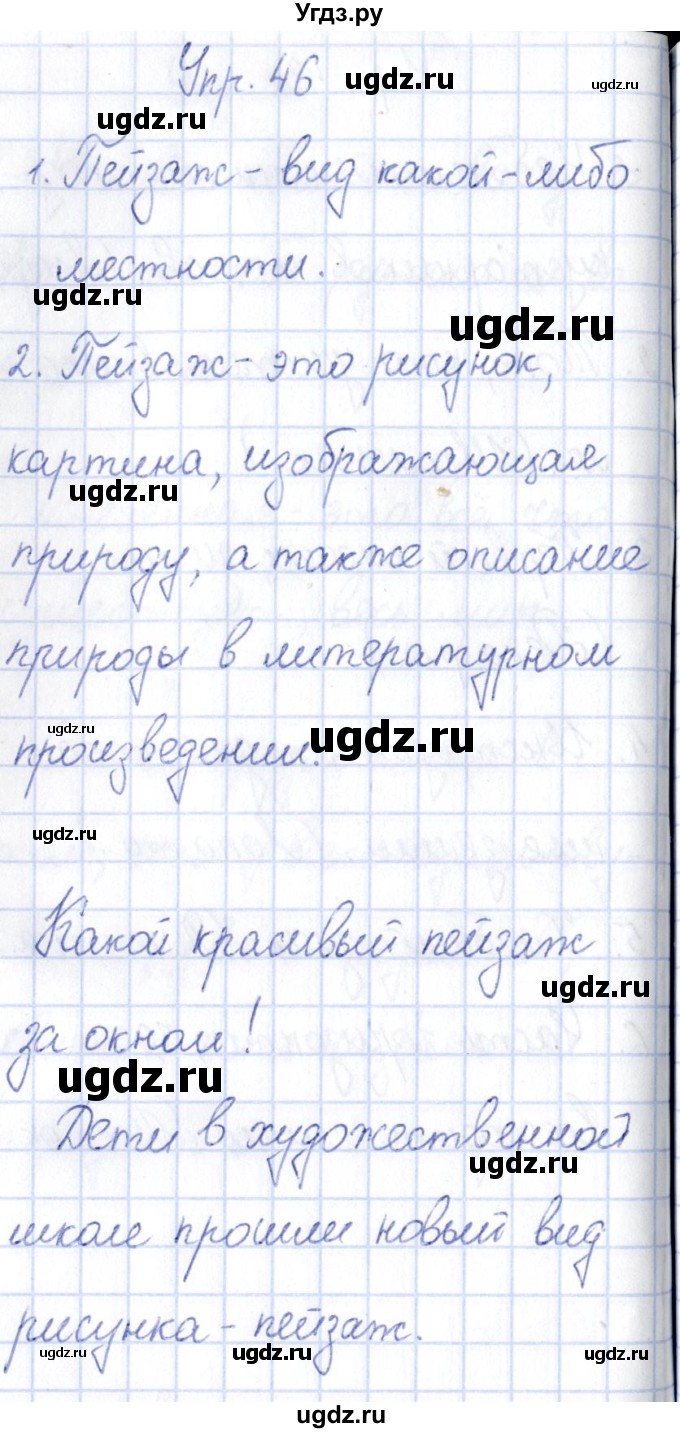 Угдз.ру
Упр. 46
ugdz.ru
ugdz.ru
ugdz.ru
1. Пейзаж - вид какой-либо
местности.
ugdz.ru
ugdz.ru
2. Пейзаж - это рисунок,
картина, изображающая
ugdz.ru
природу, а также описание
природы в литературном
ugdz.ru
произведении.
ugdz.ru
ugdz.ru
Какой красивый пейзаж
ugdz.ru
за окном!
ugdz.ru
Дети в художественной
ugdz.ru
школе прошли новый вид
рисунка - пейзаж.
ugdz.ru
ugdz.ru
ugdz.ru
ugdz.ru